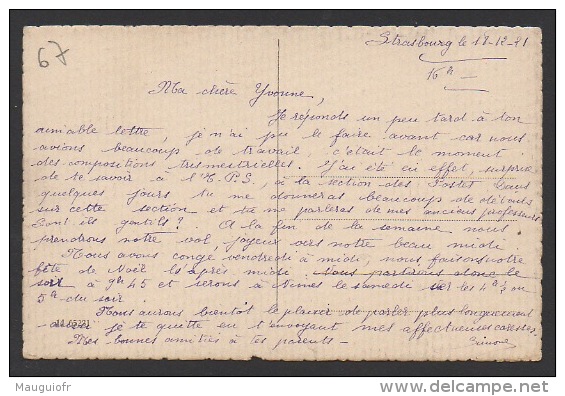 67
Strasbourg le 18-12-31
16 h —
Ma chère Yvonne,
Je réponds un peu tard à ton
aimable lettre, je n'ai pu le faire avant car nous
avions beaucoup de travail, c'était le moment
des compositions trimestrielles. J'ai été en effet, surprise
de te savoir à l'E.P.S., à la section des Postes. Dans
quelques jours tu me donneras beaucoup de détails
sur cette section et tu me parleras de mes anciens professeurs
Sont ils gentils? A la fin de la semaine nous
prendrons notre vol, joyeux vers notre beau midi
Nous avons congé vendredi à midi, nous faisons notre
fête de Noël l'après midi. Nous partirons donc le
soir à 9h 45 et serons à Nîmes le samedi sur les 4h ou
5h du soir.
Nous aurons bientôt le plaisir de parler plus longuement
aussi je te quitte en t'envoyant mes affectueuses caresses.
Mes bonnes amitiés à tes parents —
Mauguiofr
delcampe.net